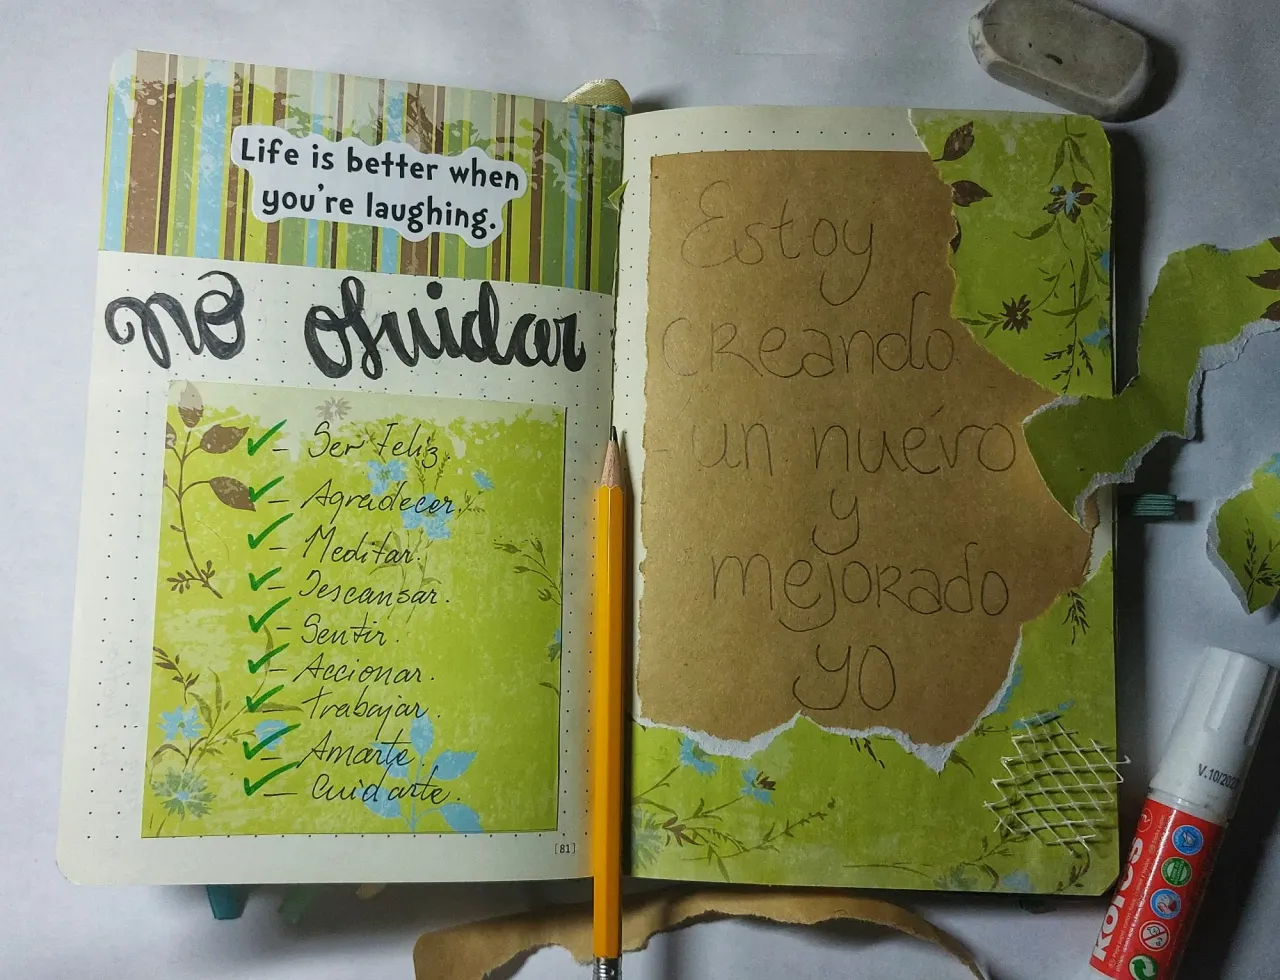 Life is better when
you're laughing.
no olvidar
- Ser Feliz
- Agradecer.
- Meditar.
- Descansar.
- Sentir.
- Accionar.
- Trabajar.
- Amarte
- Cuidarte.
[81]
Estoy
creando
un nuevo
y
mejorado
yo
V.10/202
Kores